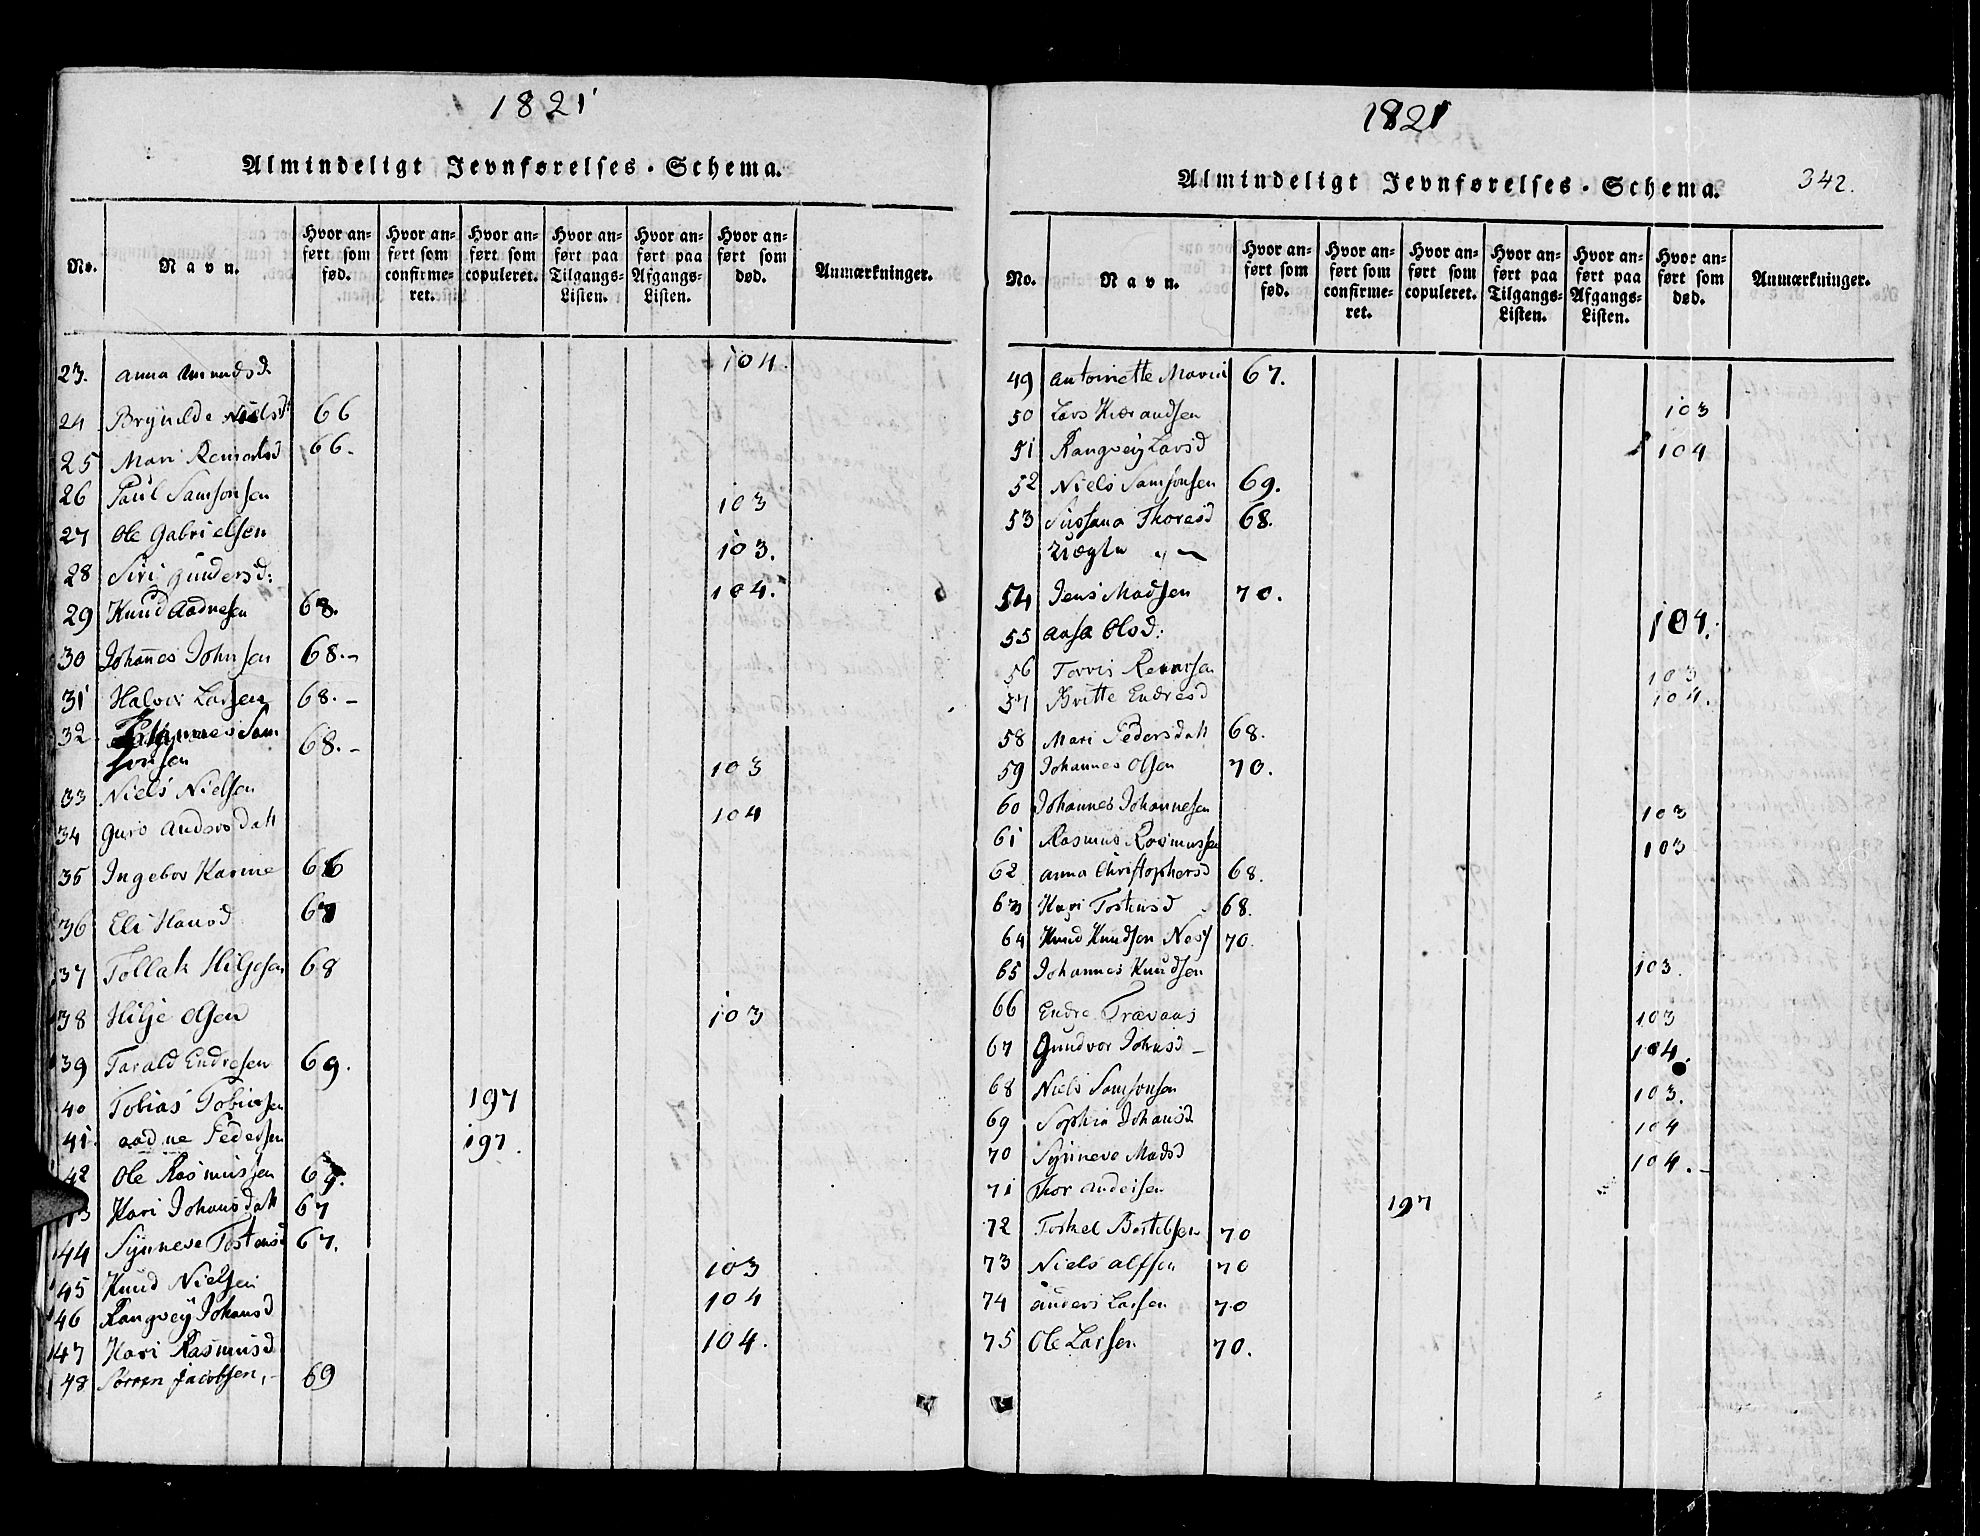 1821
Almindeligt Jevnførelses-Schema.
No. Navn. Hvor anført som fød. Hvor anført som confirmeret. Hvor anført som copuleret. Hvor anført paa Tilgangs-Listen. Hvor anført paa Afgangs-Listen. Hvor anført som død. Anmærkninger.
23. Anna Amundsd. 104.
24 Brynilde Nielsd. 66
25 Mari 66.
26 Paul Samsonsen 103
27 Ole Gabrielsen 103.
28 Siri Gundersd: 104.
29 Knud Aadnesen 68.
30 Johanes Johnsen 68.-
31 Halvor Larsen 68.-
32 Johannes Sam
sonsen 68.-
33 Niels Nielsen 103
34 Guro Andersdatt 104
35 Ingebor Karine 66
36 Eli Hansd 67
37 Tollak Hiljesen 68
38 Hilje Olsen 103
39 Tarald Endresen 69.
40 Tobias Tobiasen 197
41 Aadne Pedersen 197.
42 Ole Rasmussen 69.
43 Kari Johansdatt 67
44 Synneve Tostensd 67.
45 Knud Nielsen 103
46 Rangvey Johansd 104
47 Kari Rasmusd 104.
48 Sørren Jacobsen,- 69
1821
342.
Almindeligt Jevnførelses-Schema.
No. Navn. Hvor anført som fød. Hvor anført som confirmeret. Hvor anført som copuleret. Hvor anført paa Tilgangs-Listen. Hvor anført paa Afgangs-Listen. Hvor anført som død. Anmærkninger.
49 Antonette Maria 67.
50 Lars 103
51 Rangvey Larsd 104
52 Niels Samsonsen 69.
53 Sussana Thoresd 68.
Uægte
54 Jens Madsen 70.
55 Aasa Olsd: 104.
56 103
57 Britte Endresd 104.
58 Mari Pedersdatt 68.
59 Johannes Olsen 70.
60 Johannes Johannesen 103
61 Rasmus Rasmussen 103
62 Anna Christophersd 68.
63 Kari Tostensd 68.
64 Knud Knudsen Nes 70.
65 Johannes Knudsen 103.
66 Endre Travaas 103
67 Gundvor Johnsd - 104.
68 Niels Samsonsen 103.
69 Sophia Johansd 104
70 Synneve Madsd 104.-
71 Thor Andersen 197
72 Torkel Bertelsen 70
73 Niels Alfsen 70
74 Anders Larsen 70
75 Ole Larsen 70.